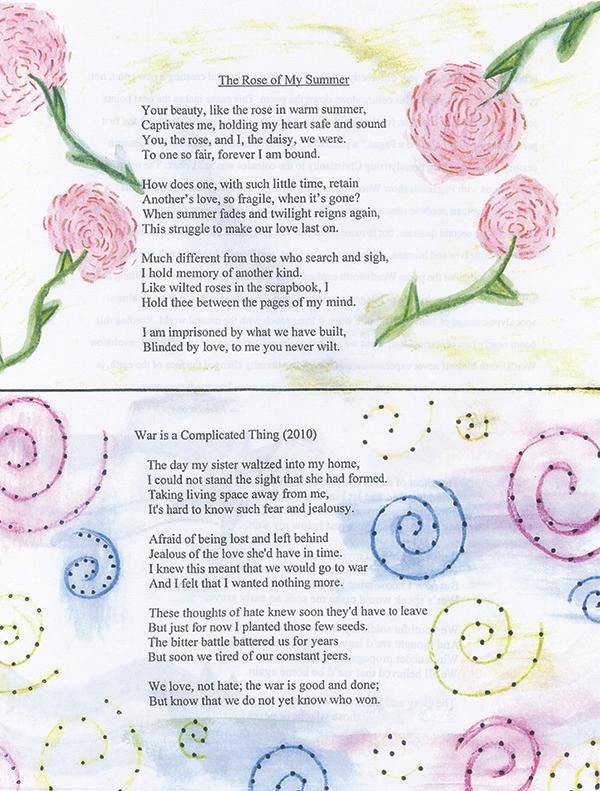 The Rose of My Summer
Your beauty, like the rose in warm summer,
Captivates me, holding my heart safe and sound
You, the rose, and I, the daisy, we were.
To one so fair, forever I am bound.
How does one, with such little time, retain
Another's love, so fragile, when it's gone?
When summer fades and twilight reigns again,
This struggle to make our love last on.
Much different from those who search and sigh,
I hold memory of another kind.
Like wilted roses in the scrapbook, I
Hold thee between the pages of my mind.
I am imprisoned by what we have built,
Blinded by love, to me you never wilt.
War is a Complicated Thing (2010)
The day my sister waltzed into my home,
I could not stand the sight that she had formed.
Taking living space away from me,
It's hard to know such fear and jealousy.
Afraid of being lost and left behind
Jealous of the love she'd have in time.
I knew this meant that we would go to war
And I felt that I wanted nothing more.
These thoughts of hate knew soon they'd have to leave
But just for now I planted those few seeds.
The bitter battle battered us for years
But soon we tired of our constant jeers.
We love, not hate; the war is good and done;
But know that we do not yet know who won.